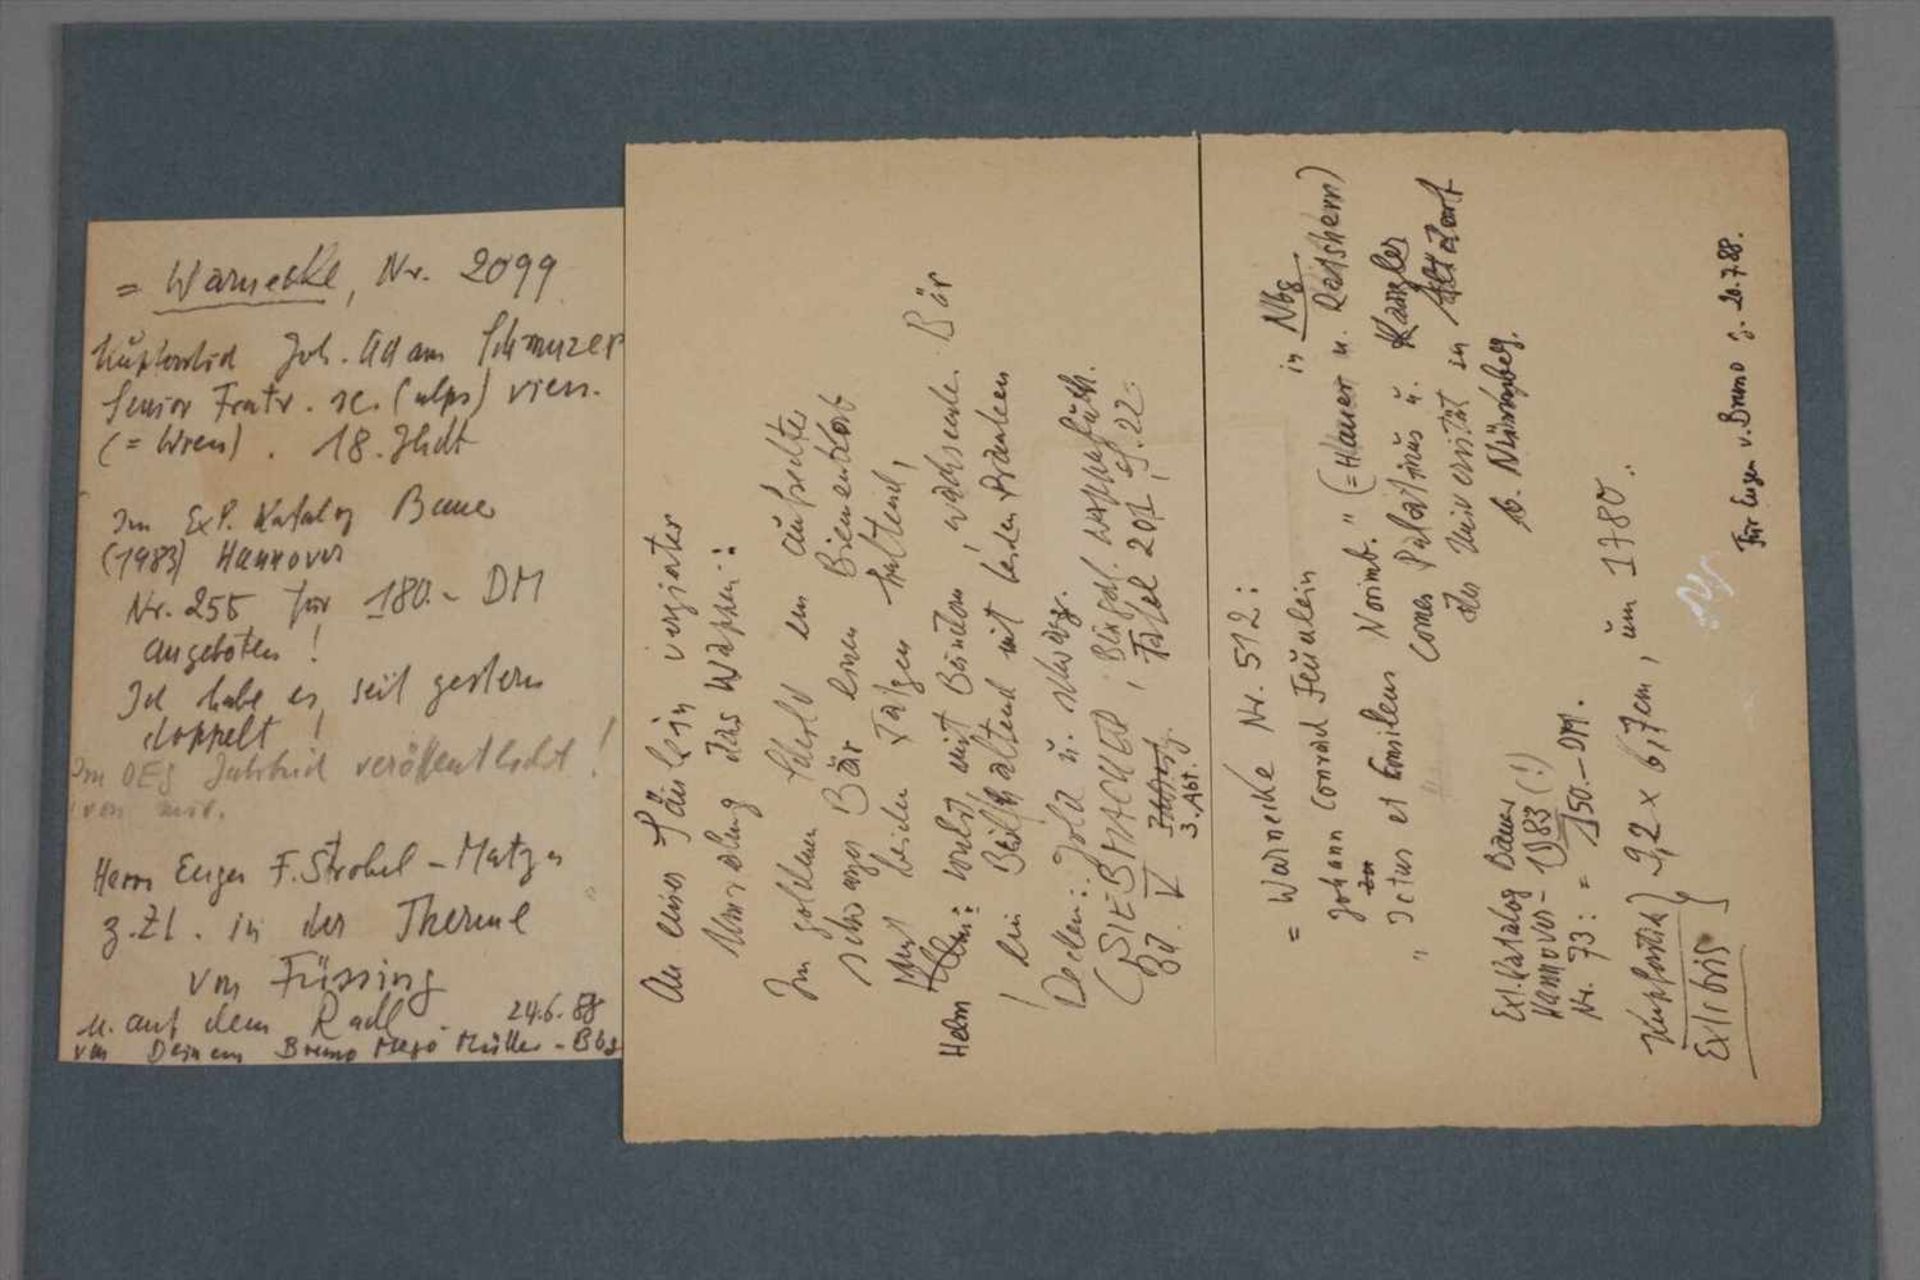 = Warnecke, Nr. 2099
Kupferstich Joh. Adam Schmuzer
Senior Fratr. sc. (ulps) vien.
(= Wien). 18. Jhdt
Im ExL. Katalog Bauer
(1983) Hannover
Nr. 255 für 180.- DM
angeboten!
Ich habe es seit gestern
doppelt!
Im OEG Jahrbuch veröffentlicht!
von mir.
Herrn Eugen F. Strobel-Matza
z.Zt. in der Therme
von Füssing
u. auf dem Radl. 24.6.88
von Deinem Bruno Müller-Bbg
An einer Säule in verzierter
Umrahmung das Wappen:
Im goldenen Schild ein aufrechter
schwarzer Bär einen Bienenkorb
mit beiden Tatzen haltend,
Helm: mit Binden, wachsende Bär
ein Beil haltend mit beiden Pranken
Decken: Gold u. schwarz.
(SIEBMACHER, Bürgerl.
Bd. V Tafel 201, S. 22
3. Abt.
= Warnecke Nr. 512:
Johann Conrad Feuerlein in Nbg
"Ictus et Consilens Norimb." (= Hauer u. Ratsherrn)
Comes Palatinus u. Kanzler
der Universität in Altdorf
b. Nürnberg.
ExL. Katalog Bauer
Hannover - 1983 (!)
Nr. 73: = 150.- DM.
Kupferstich } 9,2 x 6,7 cm, um 1780.
Exlibris
Für Eugen v. Bruno 20.7.88.